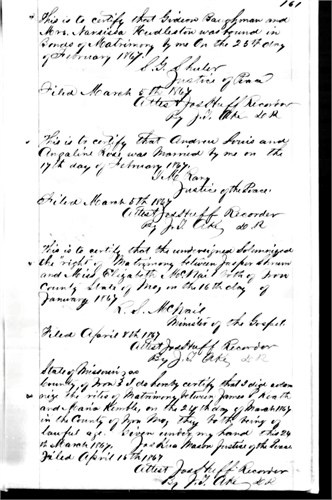 161
This is certify that Gideon Baughman and
Mrs. Narsissa Hudleston was bound in
bonds of Matrimony by me on the 25th day
of February 1867.
Justice of Peace
Filed March 5th 1867
Attest Jos Huff Recorder
By J. T. Ake D.R.
This is to certify that Andrew and
Angaline Rose was Married by me on the
17th day of February 1867.
Justice of the Peace
Filed March 5th 1867
Attest Jos Huff Recorder
By J. T. Ake D.R.
This is to certify that the undersigned Solemnized
the right of Matrimony between Jasper
and Miss Elizabeth McNail both of Iron
County State of Mo, on the 16th day of
January 1867
McNail
Minister of the Gospel
Filed April 8th 1867
Attest Jos Huff Recorder
By J. T. Ake D.R.
State of Missouri
County of Iron I do hereby certify that I did solem
nize the rites of Matrimony between James
and Maria Kemble, on the 24th day of March 1867
in the County of Iron Mo, they both being of
lawful age. Given under my hand this 24
th March 1867. Mason Justice of the Peace
Filed April 15th 1867
Attest Jos Huff Recorder
By J. T. Ake D.R.